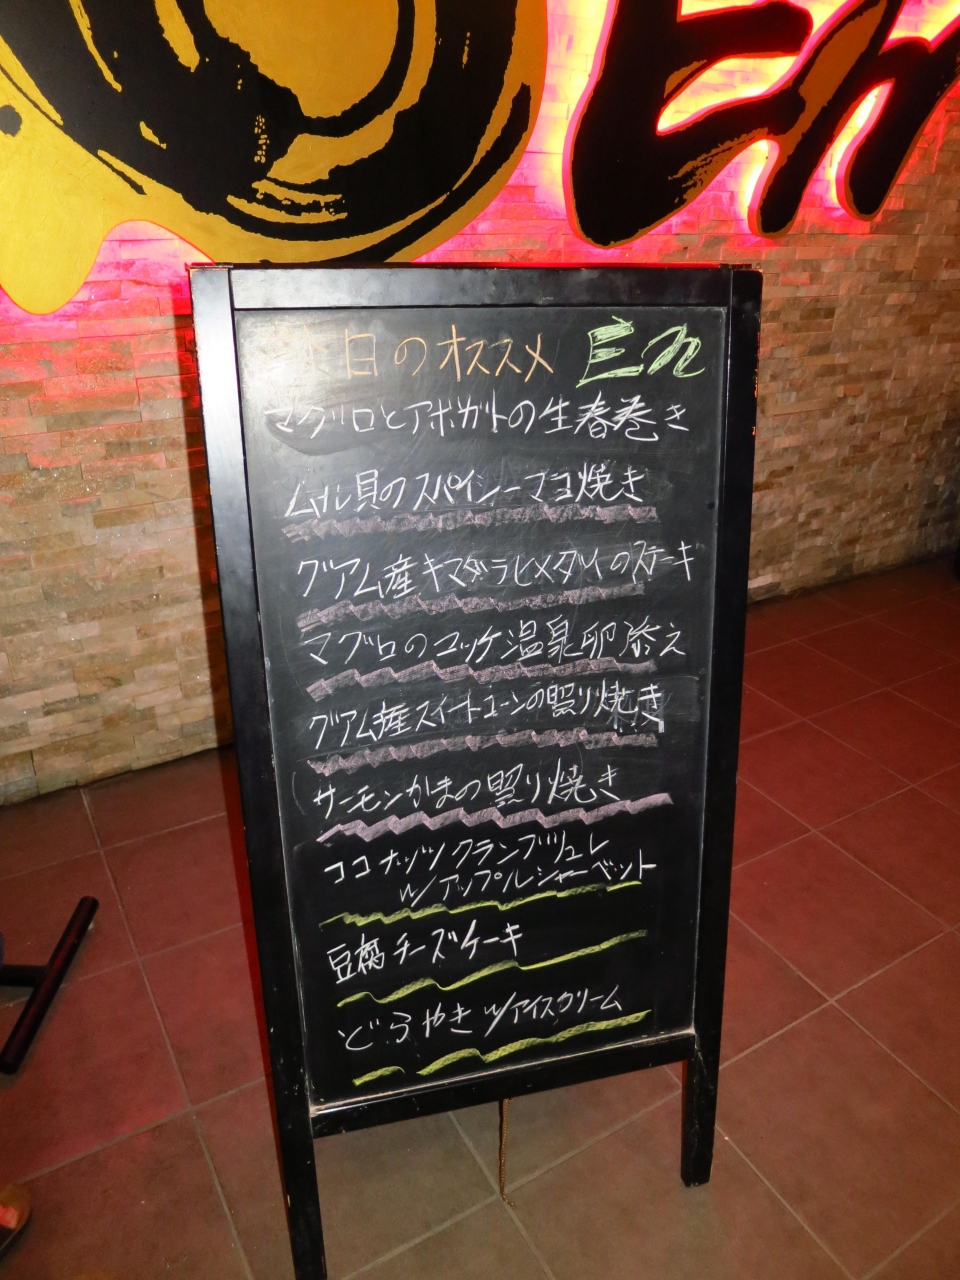 En
本日のオススメ En
マグロとアボカドの生春巻き
ムール貝のスパイシーマヨ焼き
グアム産キマダラヒメダイのステーキ
マグロのユッケ温泉卵添え
グアム産スイートコーンの照り焼き
サーモンかまの照り焼き
ココナッツクランブリュレ
w/アップルシャーベット
豆腐チーズケーキ
どらやき w/アイスクリーム